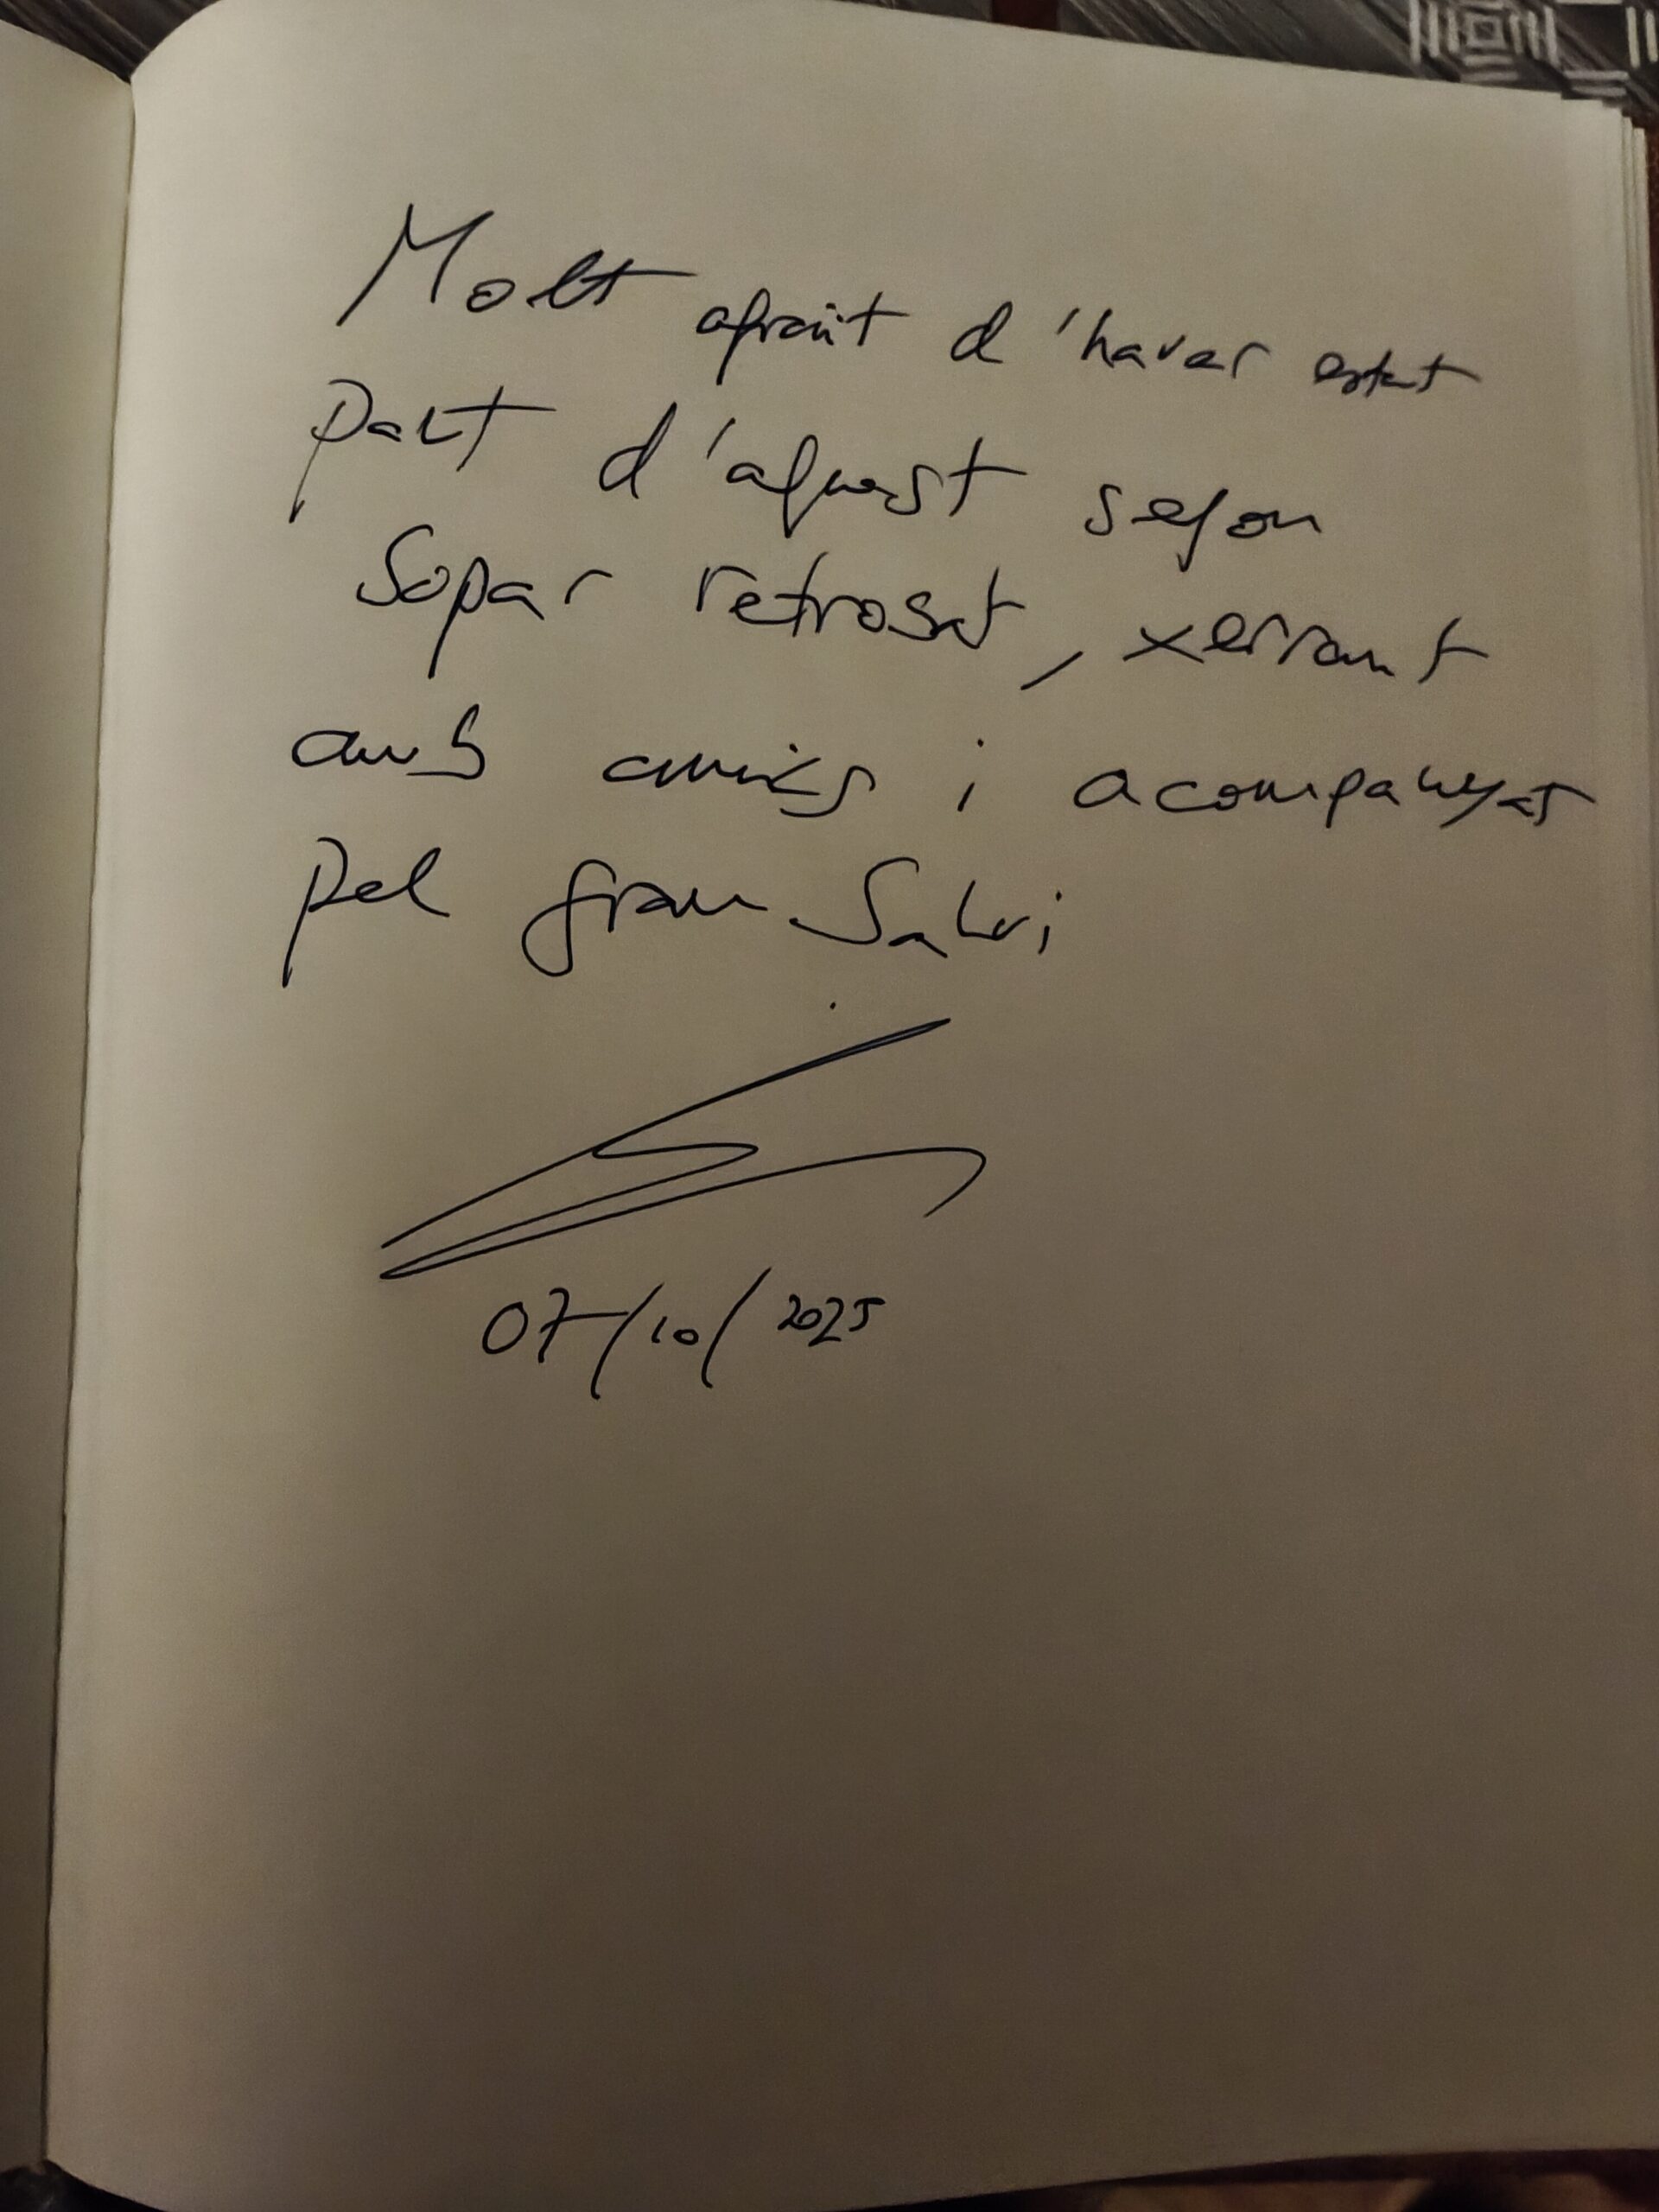 Molt agraït d'haver estat
part d'aquest segon
Sopar retroset, xerrant
amb amics i acompanyat
pel gran Salvi
07/10/2025